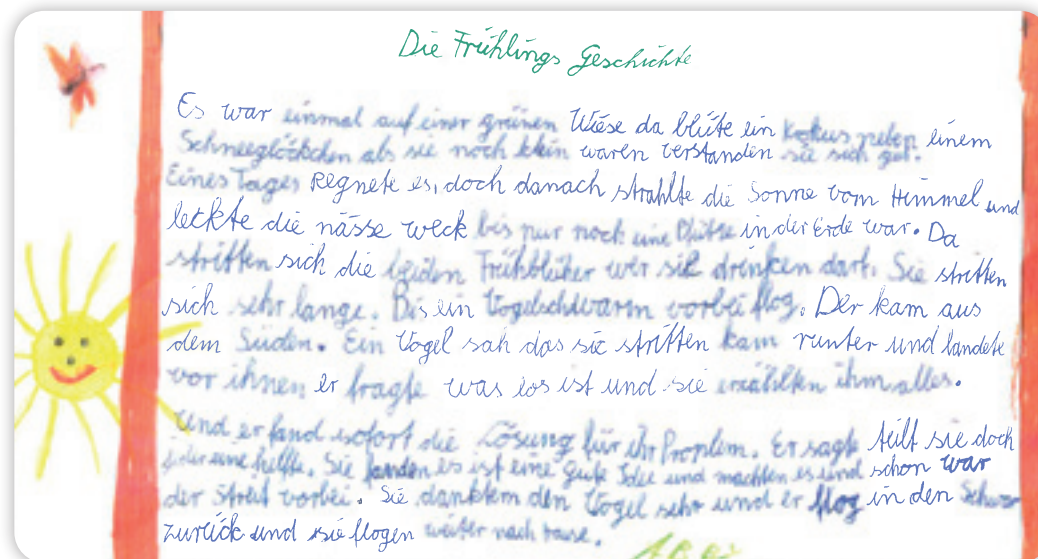 Die Frühlings Geschichte
Es war einmal auf einer grünen Wiese da blüte ein krokus neben einem
Schneeglöckchen als sie noch klein waren verstanden sie sich gut.
Eines Tages Regnete es, doch danach strahlte die Sonne vom Himmel und
leckte die nässe weck bis nur noch eine Pfütze in der Erde war. Da
stritten sich die beiden Frühblüher wer sie drinken darf. Sie stritten
sich sehr lange. Bis ein Vogelschwarm vorbei flog. Der kam aus
dem Süden. Ein Vogel sah das sie stritten kam runter und landete
vor ihnen er fragte was los ist und sie erzählten ihm alles.
Und er fand sofort die Lösung für ihr Proplem. Er sagte teilt sie doch
jeder eine helfte. Sie fanden es ist eine gute Idee und machten es und schon war
der Streit vorbei. Sie danktem den Vogel sehr und er flog in den
zurück und sie flogen weiter nach hause.